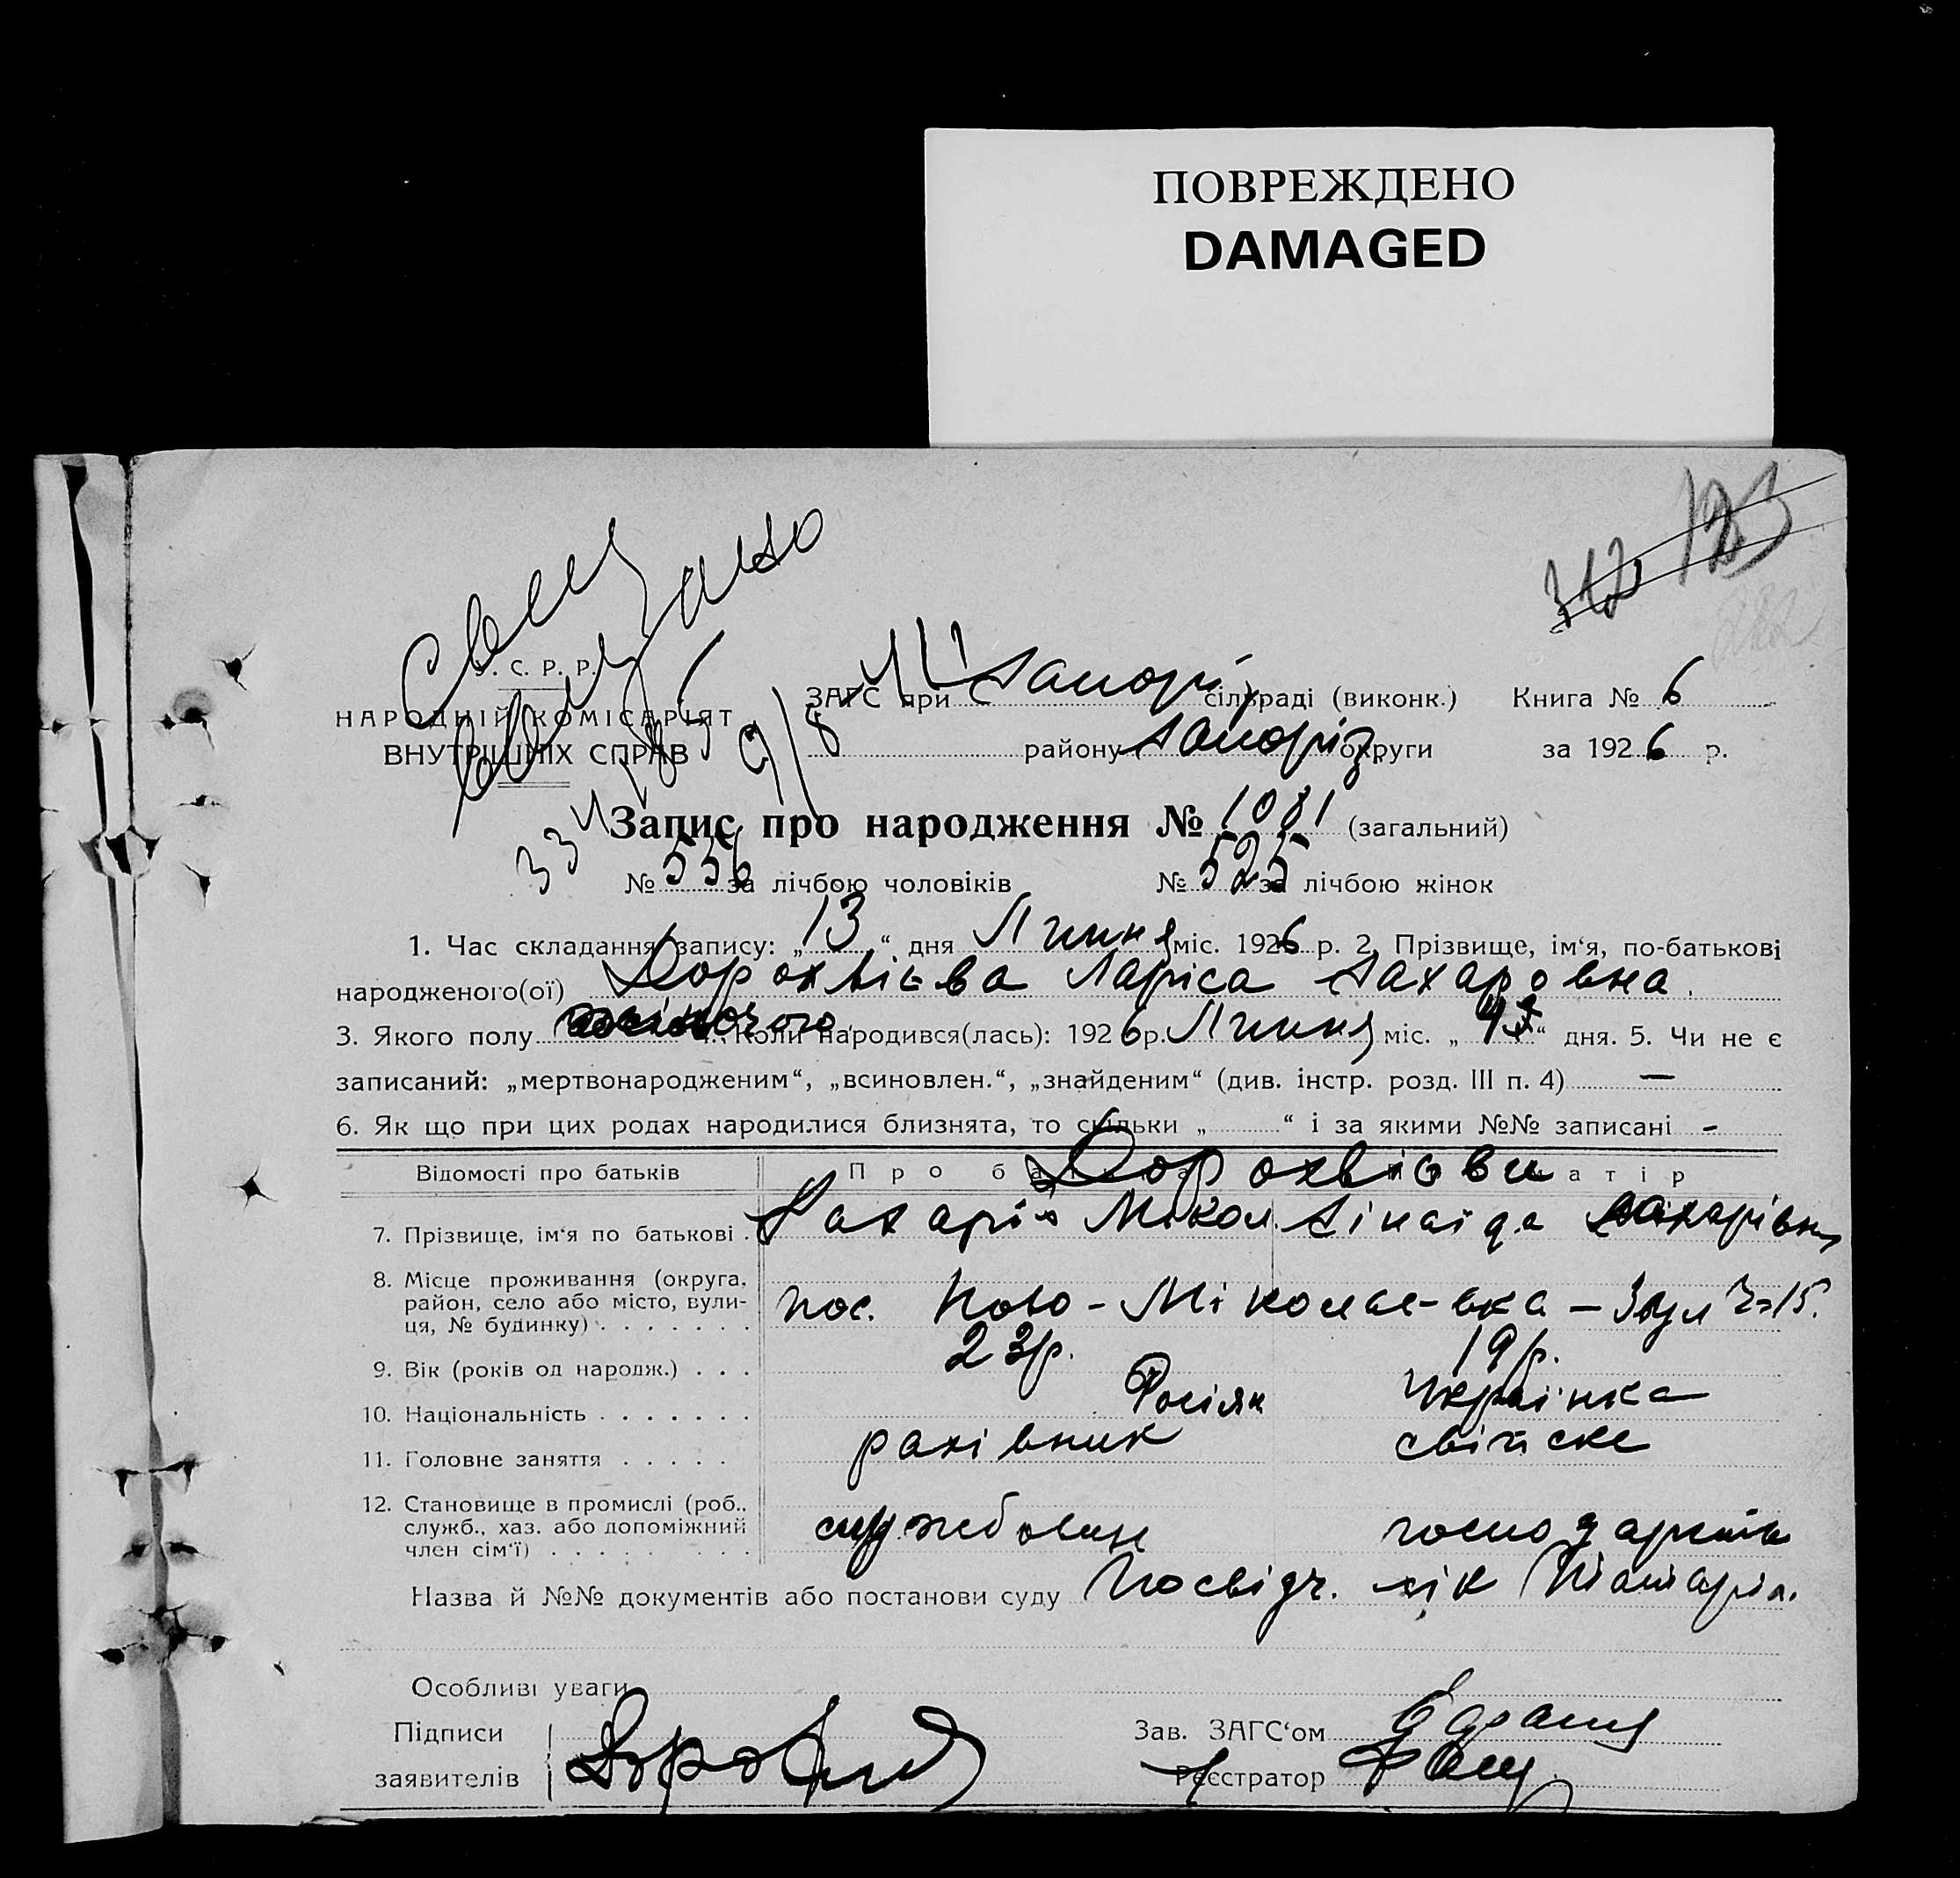 ПОВРЕЖДЕНО
DAMAGED
123
312
У. С. Р. Р.
НАРОДНІЙ КОМІСАРІЯТ
ВНУТРІШНІХ СПРАВ
ЗАГС при Запоріз сільраді (виконк.) Книга № 6
району Запоріз округи за 1926 р.
Запис про народження № 1081 (загальний)
№ 556 за лічбою чоловіків № 525 за лічбою жінок
1. Час складання запису: „13“ дня Липня міс. 1926 р. 2. Прізвище, ім‘я, по-батькові
народженого(ої) Дорохвієва Ларіса Захаровна
3. Якого полу жіночого 4. Коли народився(лась): 1926 р. Липня міс. „ “ дня. 5. Чи не є
записаний: „мертвонародженим“, „всиновлен.“, „знайденим“ (див. інстр. розд. III п. 4) —
6. Як що при цих родах народилися близнята, то скільки „ “ і за якими №№ записані -
Відомості про батьків Про батька Про матір
Дорохвієви
7. Прізвище, ім‘я по батькові . Захарій Мікол. Зінаіда Захарівна
8. Місце проживання (округа, район, село або місто, вулиця, № будинку) . . . . . . . пос. Ново-Міколаєвка – 3 вул № 15.
9. Вік (років од народж.) . . . 23 р. 19 р.
10. Національність . . . . . . . Росіян Українка
11. Головне заняття . . . . . рахівник свійське
12. Становище в промислі (роб., служб., хаз. або допоміжний член сім‘ї) . . . . . . . . службовець господарств
Назва й №№ документів або постанови суду Посвідч. лік
Особливі уваги
Підписи
заявителів
Зав. ЗАГС‘ом
Реєстратор